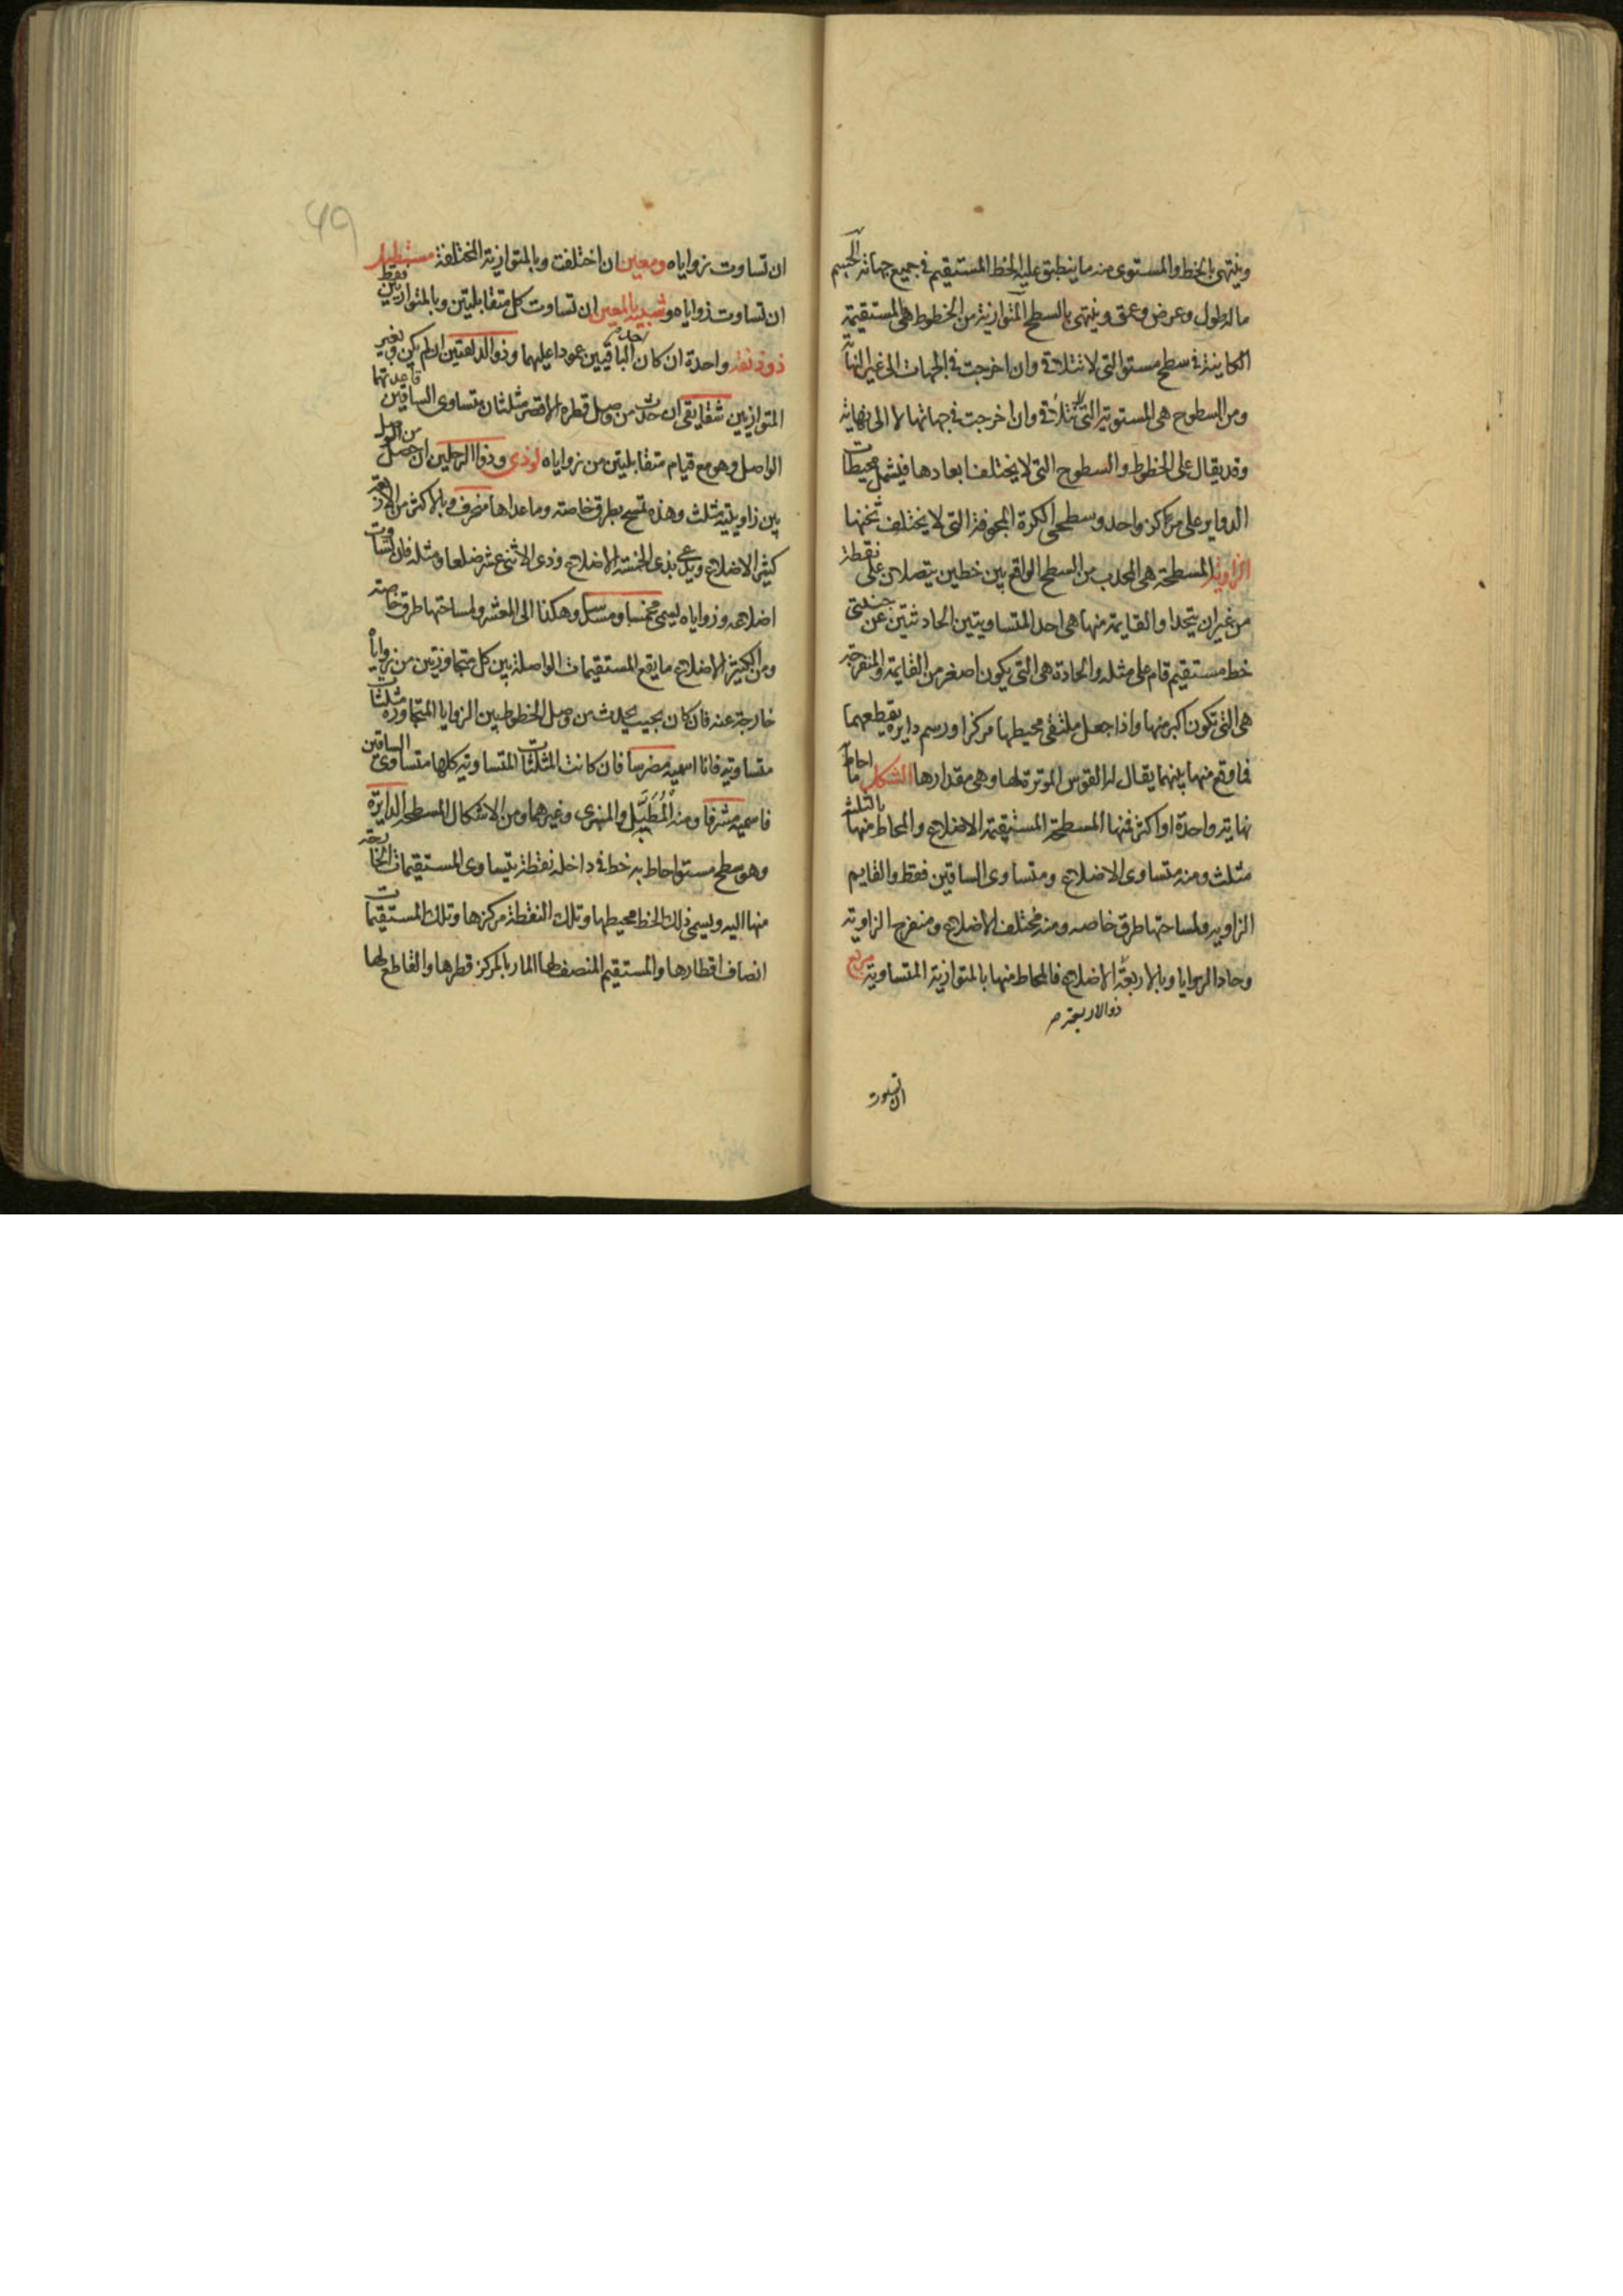 وينتهى بالخط والمستوى منه ما ينطبق عليه الخط المستقيم فى جميع جهاته الجسم
ماله طول وعرض وعمق وينتهى بالسطح المتوازية من الخطوط هى المستقيمة
الكاينة فى سطح مستو التى لا تتلاقى وان اخرجت فى الجهات الى غير النهاية
ومن السطوح هى المستوية التى لا تتلاقى وان اخرجت فى جهاتها لا الى نهاية
وقد يقال على الخطوط والسطوح التى لا يختلف ابعادها فيشمل محيطات
الدواير على مركز واحد وسطحى الكرة المجوفة التى لا يختلف ثخنها
الزاوية المسطحة هى المحدب من السطح الواقع بين خطين يتصلان على نقطة
من غير ان يتحدا والقايمة منها هى احد المتساويتين الحادثتين عن جنبتى
خط مستقيم قام على مثله والحادة هى التى يكون اصغر من القايمة والمنفرجة
هى التى تكون اكبر منها واذا جعل ملتقى محيطها مركزا ورسم دايرة يقطعهما
فما وقع منها بينهما يقال له القوس الموترة لها وهى مقدارها الشكل ما احاط
نهاية واحدة او اكثر فمنها المسطحة المستقيمة الاضلاع والمحاط منها بالثلث
مثلث ومنه متساوى الاضلاع ومتساوى الساقين فقط والقايم
الزاوية ولمساحتها طرق خاصه ومنه مختلف الاضلاع ومنفرج الزاوية
وحاد الزوايا وبالاربعة الاضلاع فالمحاط منها بالمتوازية المتساوية مربع
ذو الاربعة م
ان تساوت
49
ان تساوت زواياه ومعين ان اختلفت وبالمتوازية المختلفة مستطيل
ان تساوت زواياه وشبيه بالمعين ان تساوت كل متقابلتين وبالمتوازيين فقط
ذو زنقة واحدة ان كان احد الباقيين عمودا عليهما وذو الذلقتين ان لم يكن وبغير
المتوازيين شقايقى ان حدث من وصل قطره الاقصر مثلثان متساوى الساقين قاعدتهما
الواصل وهو مع قيام متقابلتين من زواياه لوذى وذو الرجلين ان حصل من الوصل
بين زاويتيه مثلث وهذه تمسح بطرق خاصته وما عداها منحرف وبالاكثر من الاربعة
كثير الاضلاع ويدعى بذى الخمسة الاضلاع وذى الاثنى عشر ضلعا ومثله فان تساوت
اضلاعه وزواياه يسمى مخمسا ومسدسا وهكذا الى المعشر ولمساحتها طرق خاصته
ومن الكثيرة الاضلاع ما يقع المستقيمات الواصلة بين كل متجاوزتين من زواياه
خارجة عنه فان كان بحيث يحدث من وصل الخطوط بين الزوايا المتجاورة مثلثات
متساوية فانا اسميه مضرسا فان كانت المثلثات المتساوية كلها متساوى الساقين
فاسميه مشرفا ومنه المطبل والمنبرى وغيرهما ومن الاشكال المسطحه الدايرة
وهو سطح مستو احاط به خط فى داخله نقطة يتساوى المستقيمات الخارجة
منها اليه ويسمى ذلك الخط محيطها وتلك النقطة مركزها وتلك المستقيمات
انصاف اقطارها والمستقيم المنصف لها المار بالمركز قطرها والقاطع لها